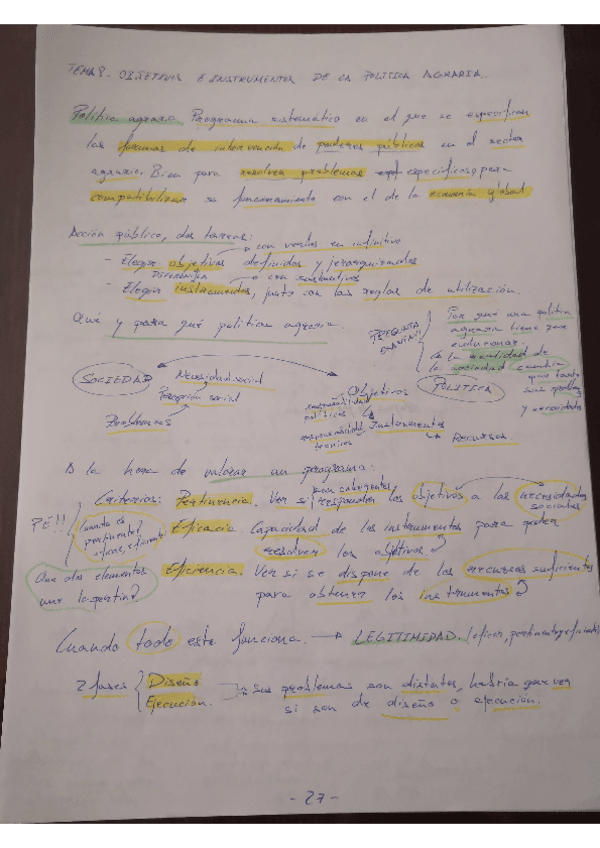 TEMA 8. OBJETIVOS E INSTRUMENTOS DE LA POLÍTICA AGRARIA.
Política agraria. Programa sistemático en el que se especifican
las formas de intervención de poderes públicos en el sector
agrario. Bien para resolver problemas específicos, o para
compatibilizar su funcionamiento con el de la economía global
Acción pública, dos tareas:
con verbos en infinitivo
- Elegir objetivos definidos y jerarquizados
DIFERENCIA
con sustantivos
- Elegir instrumentos, junto con las reglas de utilización.
Qué y para qué política agraria.
PREGUNTA EXAMEN!!
Por qué una política
agraria tiene que
evolucionar.
la sociedad cambia
y necesidades
SOCIEDAD
Necesidad social
Percepción social
Problemas
Objetivos
POLÍTICA
responsabilidad
políticos
responsabilidad
técnicos
Instrumentos
Recursos
A la hora de valorar un programa:
Criterios: Pertinencia. Ver si responden los objetivos a las necesidades
son coherentes
sociales
PE!!
Cuando es
pertinente,
eficaz, eficiente
Eficacia. Capacidad de los instrumentos para poder
resolver los objetivos?
Que dos elementos
une la pertin?
Eficiencia. Ver si se dispone de los recursos suficientes
para obtener los instrumentos?
Cuando todo esto funciona. → LEGITIMIDAD. (eficaz, pertinente y eficiente)
2 fases { Diseño
Ejecución.
Sus problemas son distintos, habría que ver
si son de diseño o ejecución.
- 27 -